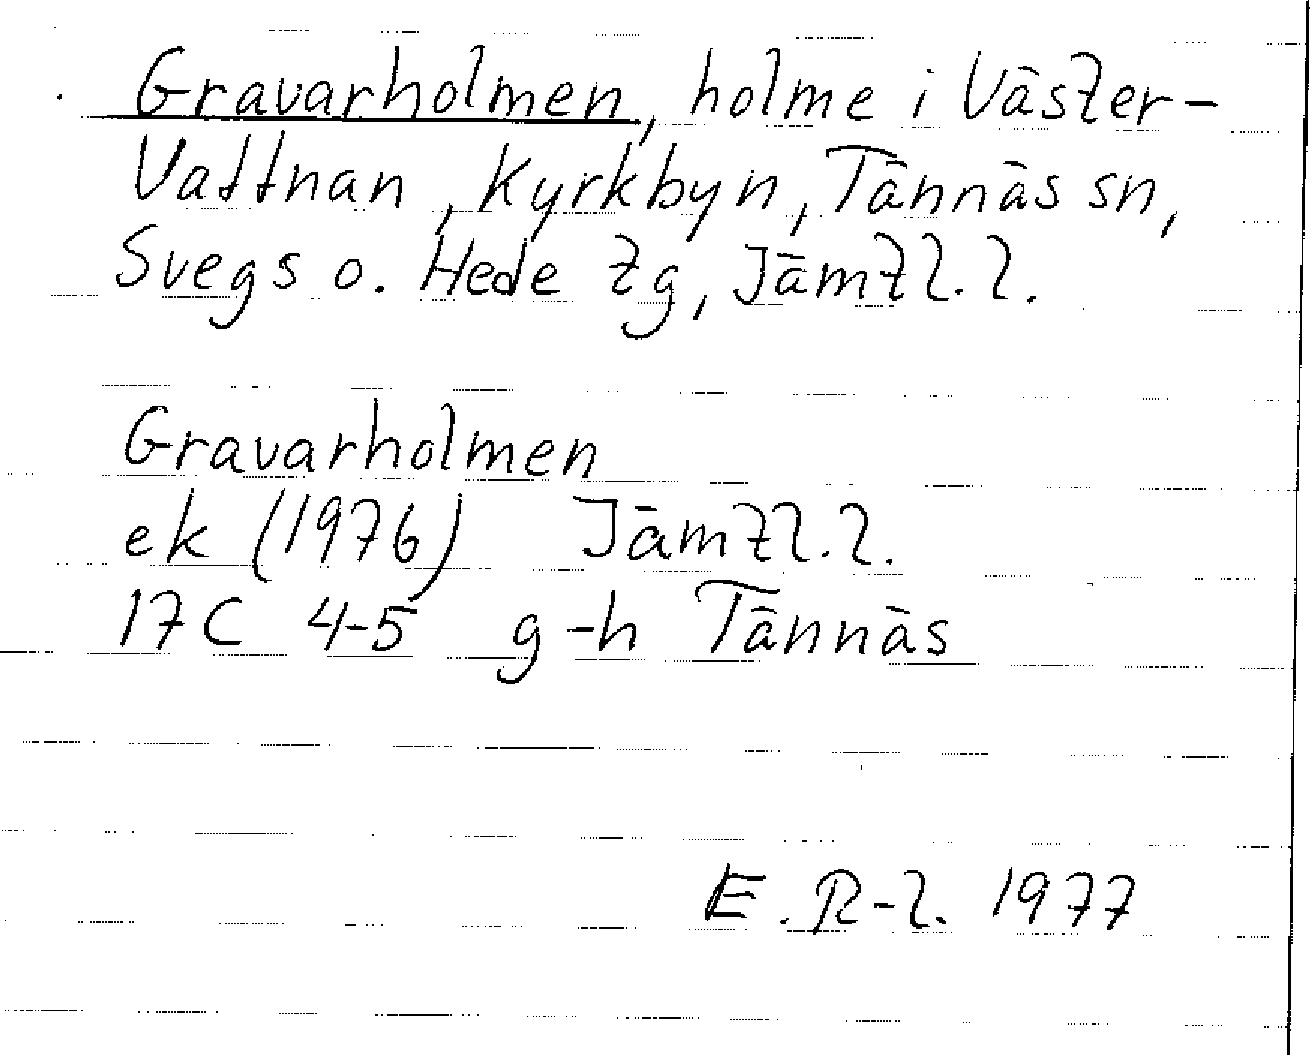 Gravarholmen, holme i Väster-
Vattnan, Kyrkbyn, Tännäs sn,
Svegs o. Hede tg, Jämtl. l.
Gravarholmen
ek (1976) Jämtl. l.
17C 4-5 g-h Tännäs
E. R-l. 1977